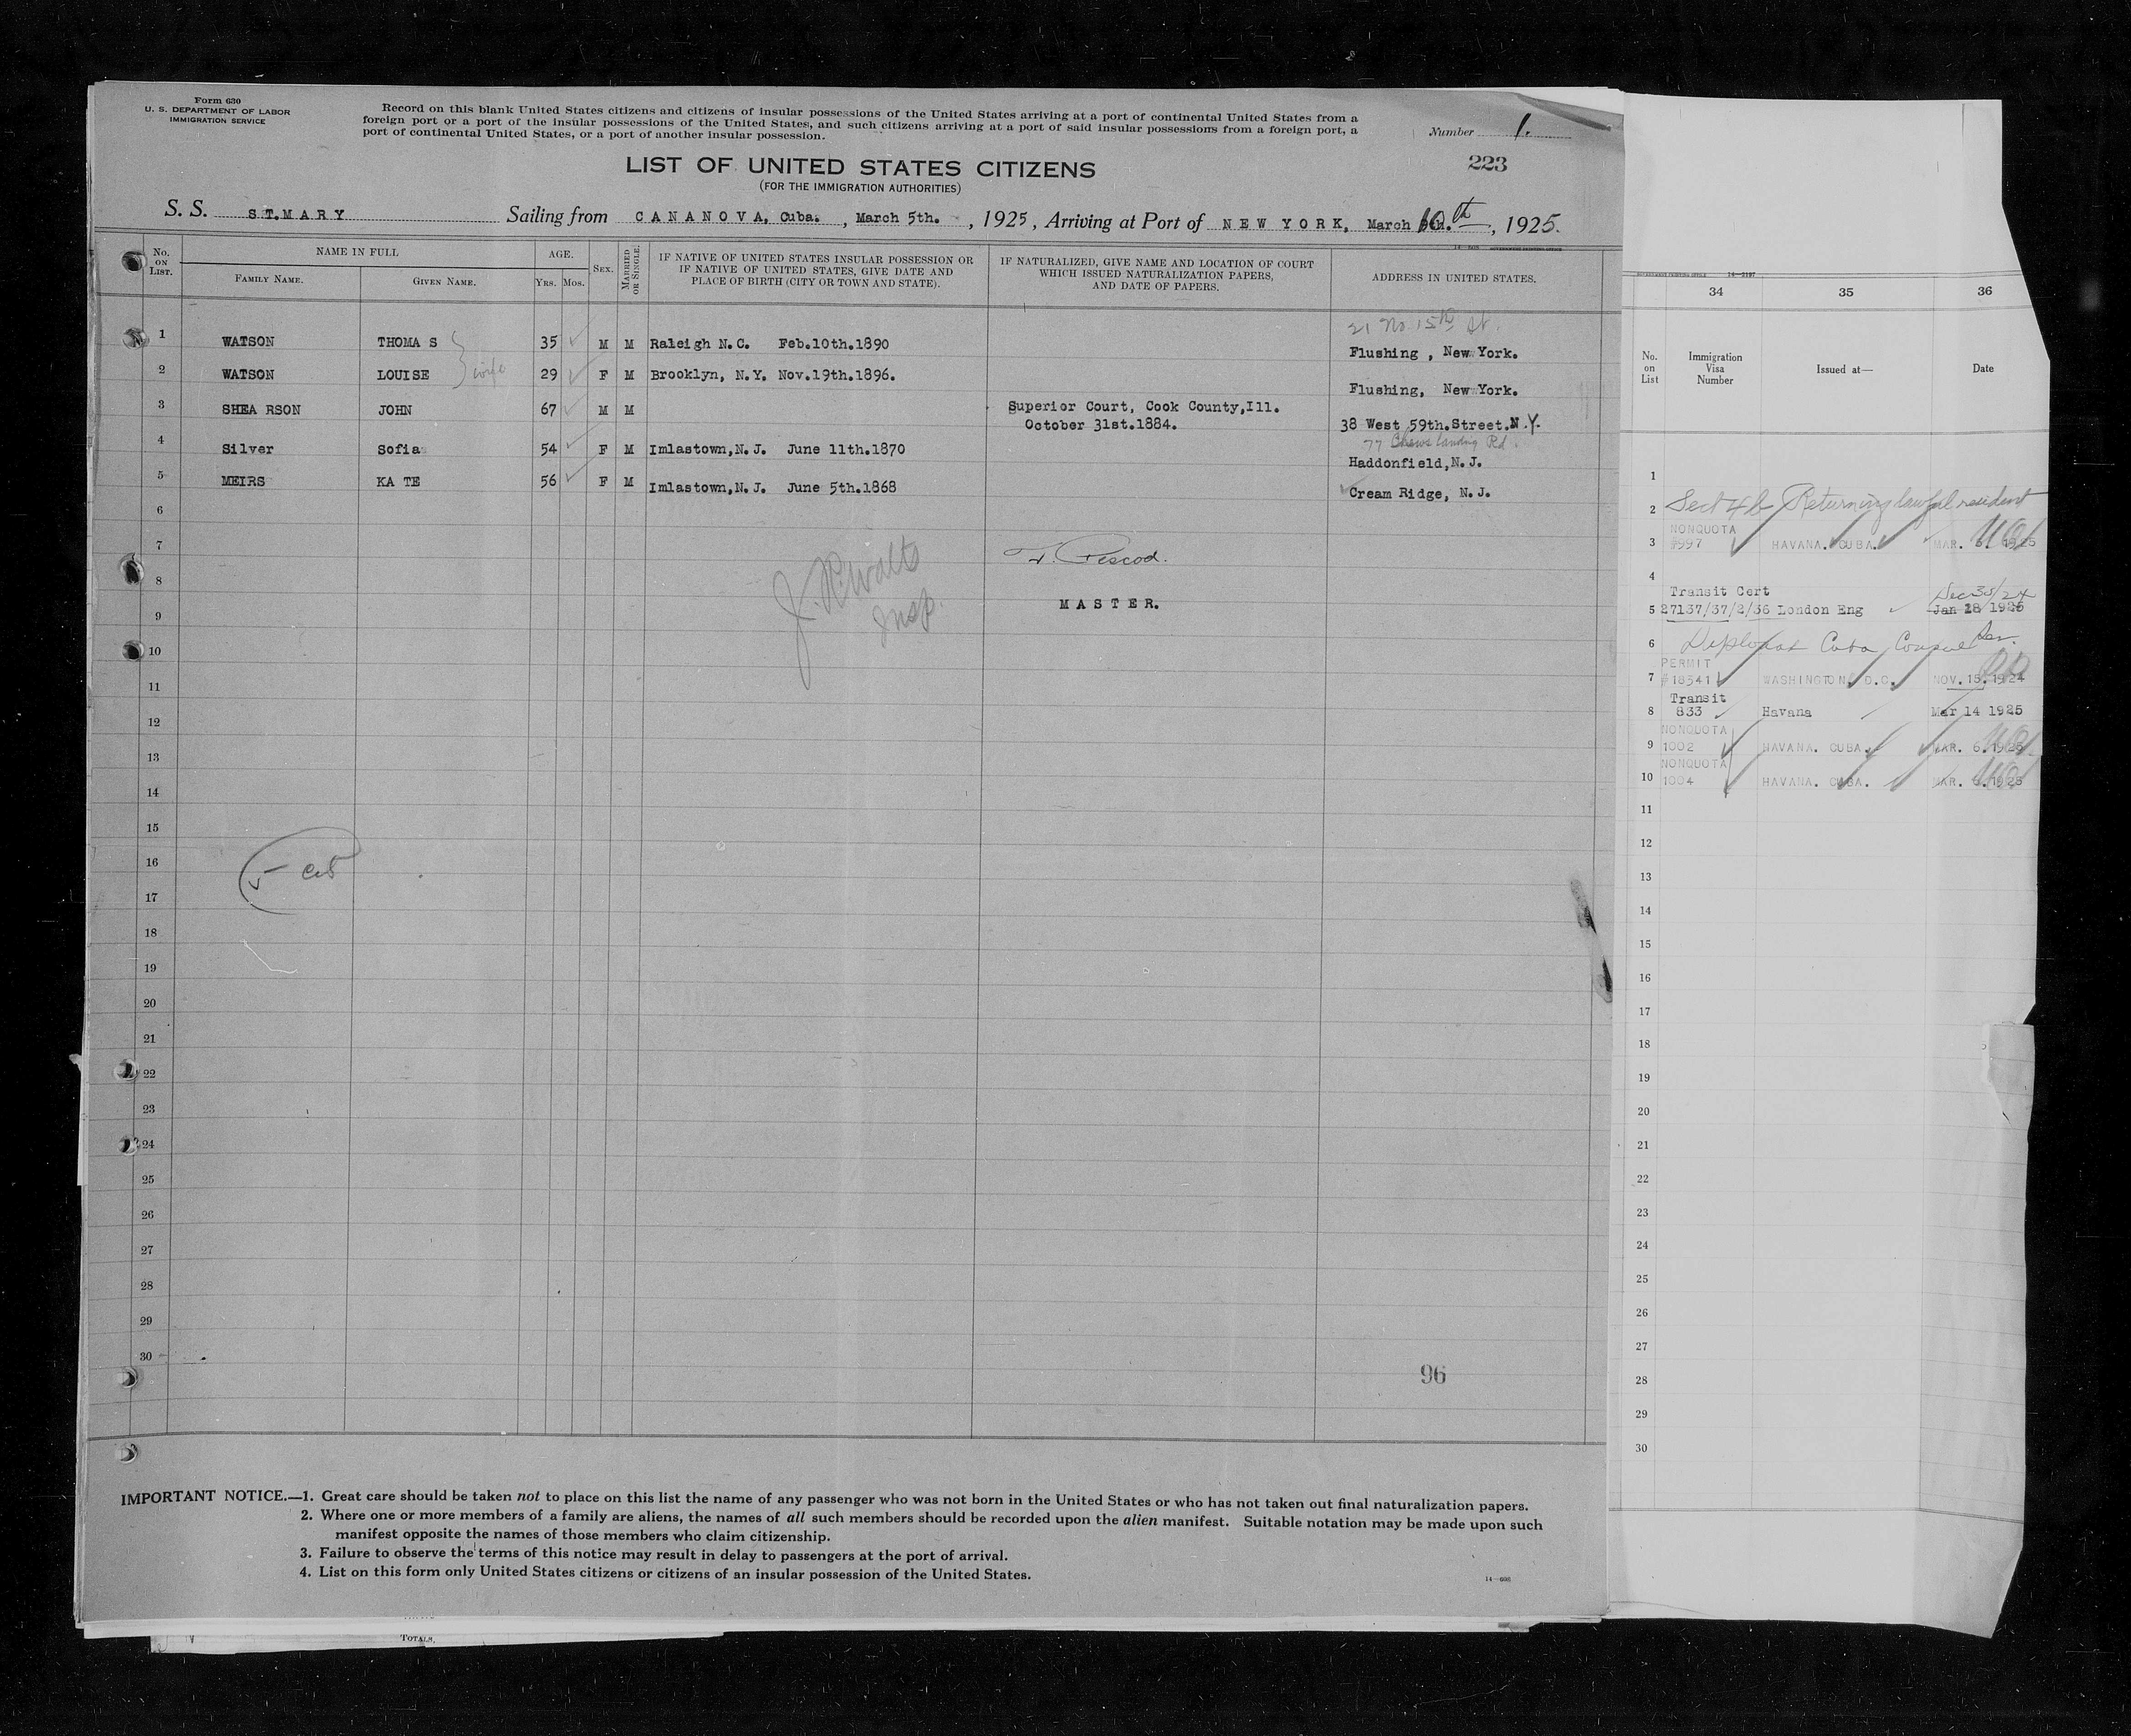 Form 630
U. S. DEPARTMENT OF LABOR
IMMIGRATION SERVICE
Record on this blank United States citizens and citizens of insular possessions of the United States arriving at a port of continental United States from a
foreign port or a port of the insular possessions of the United States, and such citizens arriving at a port of said insular possessions from a foreign port, a
port of continental United States, or a port of another insular possession.
Number 1.
223
LIST OF UNITED STATES CITIZENS
(FOR THE IMMIGRATION AUTHORITIES)
S. S. ST.MARY Sailing from CANANOVA, Cuba. , March 5th. , 1925 , Arriving at Port of NEW YORK, March 10th , 1925.
No. on List.
NAME IN FULL
Family Name.
Given Name.
AGE.
Yrs. Mos.
Sex.
Married or Single.
IF NATIVE OF UNITED STATES INSULAR POSSESSION OR
IF NATIVE OF UNITED STATES, GIVE DATE AND
PLACE OF BIRTH (CITY OR TOWN AND STATE).
IF NATURALIZED, GIVE NAME AND LOCATION OF COURT
WHICH ISSUED NATURALIZATION PAPERS,
AND DATE OF PAPERS.
ADDRESS IN UNITED STATES.
21 No. 15th St.
1 WATSON THOMA S 35 M M Raleigh N.C. Feb.10th.1890 Flushing , New York.
2 WATSON LOUISE wife 29 F M Brooklyn, N.Y. Nov.19th.1896. Flushing, New York.
3 SHEA RSON JOHN 67 M M Superior Court, Cook County,Ill.
October 31st.1884. 38 West 59th.Street.N.Y.
77 Chews landing Rd.
4 Silver Sofia 54 F M Imlastown,N.J. June 11th.1870 Haddonfield,N.J.
5 MEIRS KA TE 56 F M Imlastown,N.J. June 5th.1868 Cream Ridge, N.J.
6
7
8
MASTER.
Insp.
9
10
11
12
13
14
15
16
17
18
19
20
21
22
23
24
25
26
27
28
29
30
96
IMPORTANT NOTICE.—1. Great care should be taken not to place on this list the name of any passenger who was not born in the United States or who has not taken out final naturalization papers.
2. Where one or more members of a family are aliens, the names of all such members should be recorded upon the alien manifest. Suitable notation may be made upon such
manifest opposite the names of those members who claim citizenship.
3. Failure to observe the terms of this notice may result in delay to passengers at the port of arrival.
4. List on this form only United States citizens or citizens of an insular possession of the United States.
Totals.
34 35 36
No. on List
Immigration Visa Number
Issued at—
Date
1
2 Sect 4b Returning lawful resident
NONQUOTA
3 #997 HAVANA. CUBA. MAR. 1925
4
Transit Cert Dec 30/24
5 27137/37/2/36 London Eng Jan 28 1925
6 Diplomat Cuba Consul
PERMIT
7 #18541 WASHINGTON, D.C. NOV.15.1924
Transit
8 833 Havana Mar 14 1925
NONQUOTA
9 1002 HAVANA. CUBA. MAR. 6.1925
NONQUOTA
10 1004 HAVANA. CUBA. MAR. 1925
11
12
13
14
15
16
17
18
19
20
21
22
23
24
25
26
27
28
29
30